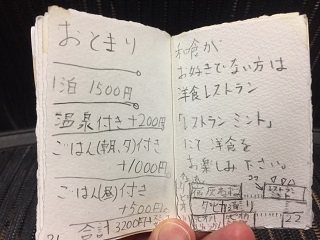 おとまり
1泊 1500円
温泉付き+200円
ごはん(朝、夕)付き
+1000円
ごはん(昼)付き
+500円
合計 3200円
和食が
お好きでない方は
洋食レストラン
「レストラン ミント」
にて洋食を
お楽しみ下さい。
ココ